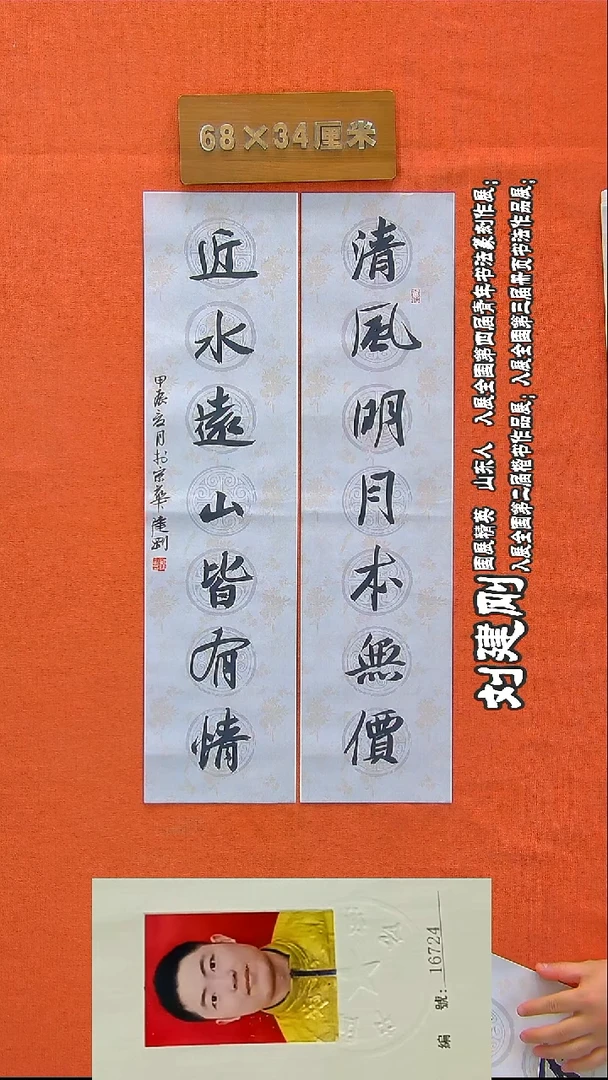 68×34厘米
清風明月本無價
近水遠山皆有情
甲辰夏月於京華建剛
刘建刚
国展精英 山东人 入展全国第四届青年书法篆刻作展；
入展全国第二届楷书作品展；入展全国第三届册页书法作品展；
編號：16724